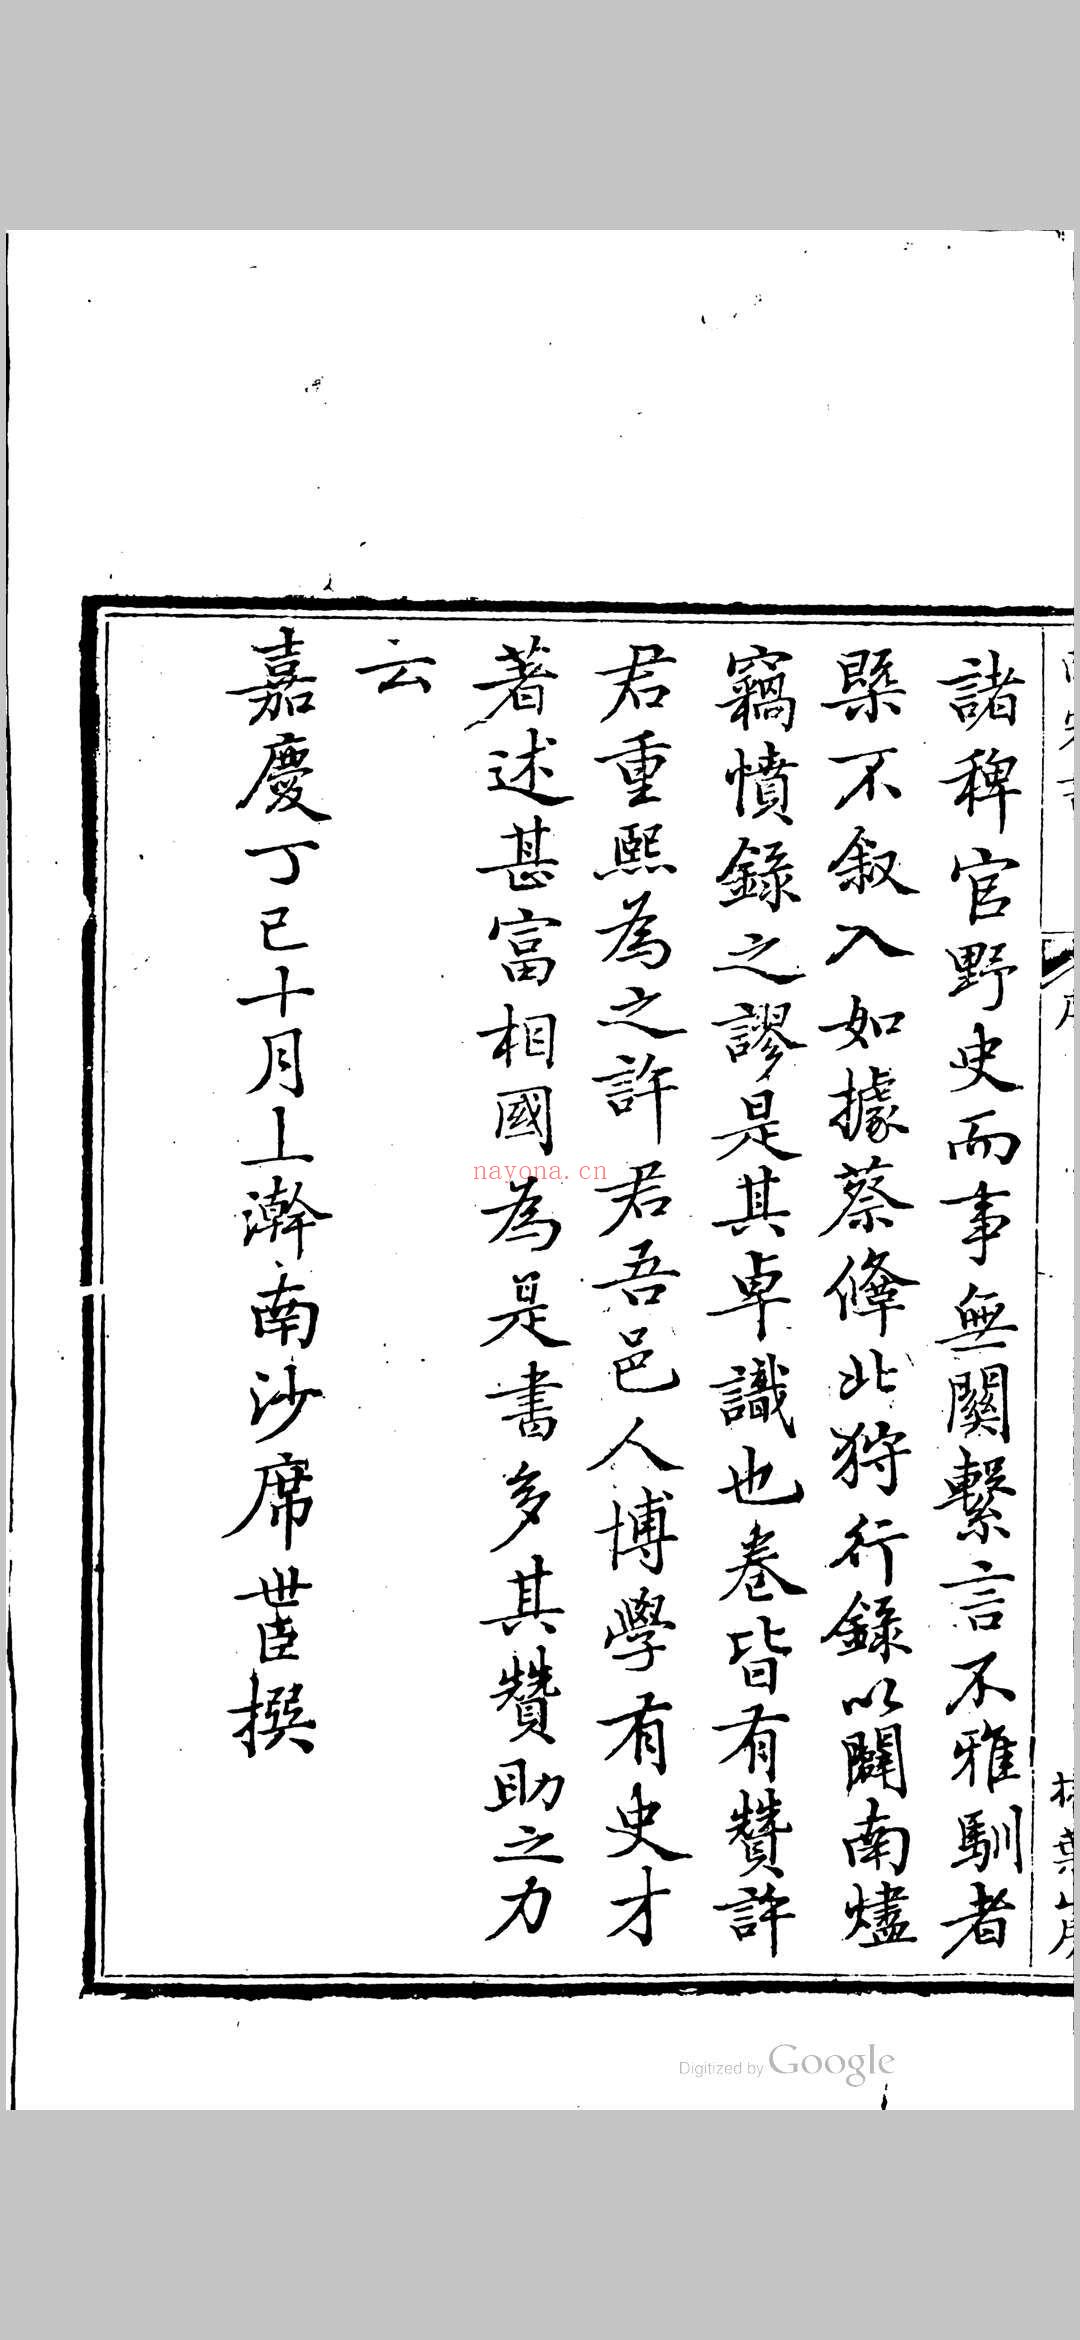 諸稗官野史而事無關繫言不雅馴者
槩不叙入如據蔡鞗北狩行錄以闢南燼
竊憤錄之謬是其卓識也卷皆有贊許
君重熙為之許君吾邑人博學有史才
著述甚富相國為是書多其贊助之力
云
嘉慶丁巳十月上澣南沙席世臣撰
nayona.cn
Digitized by Google